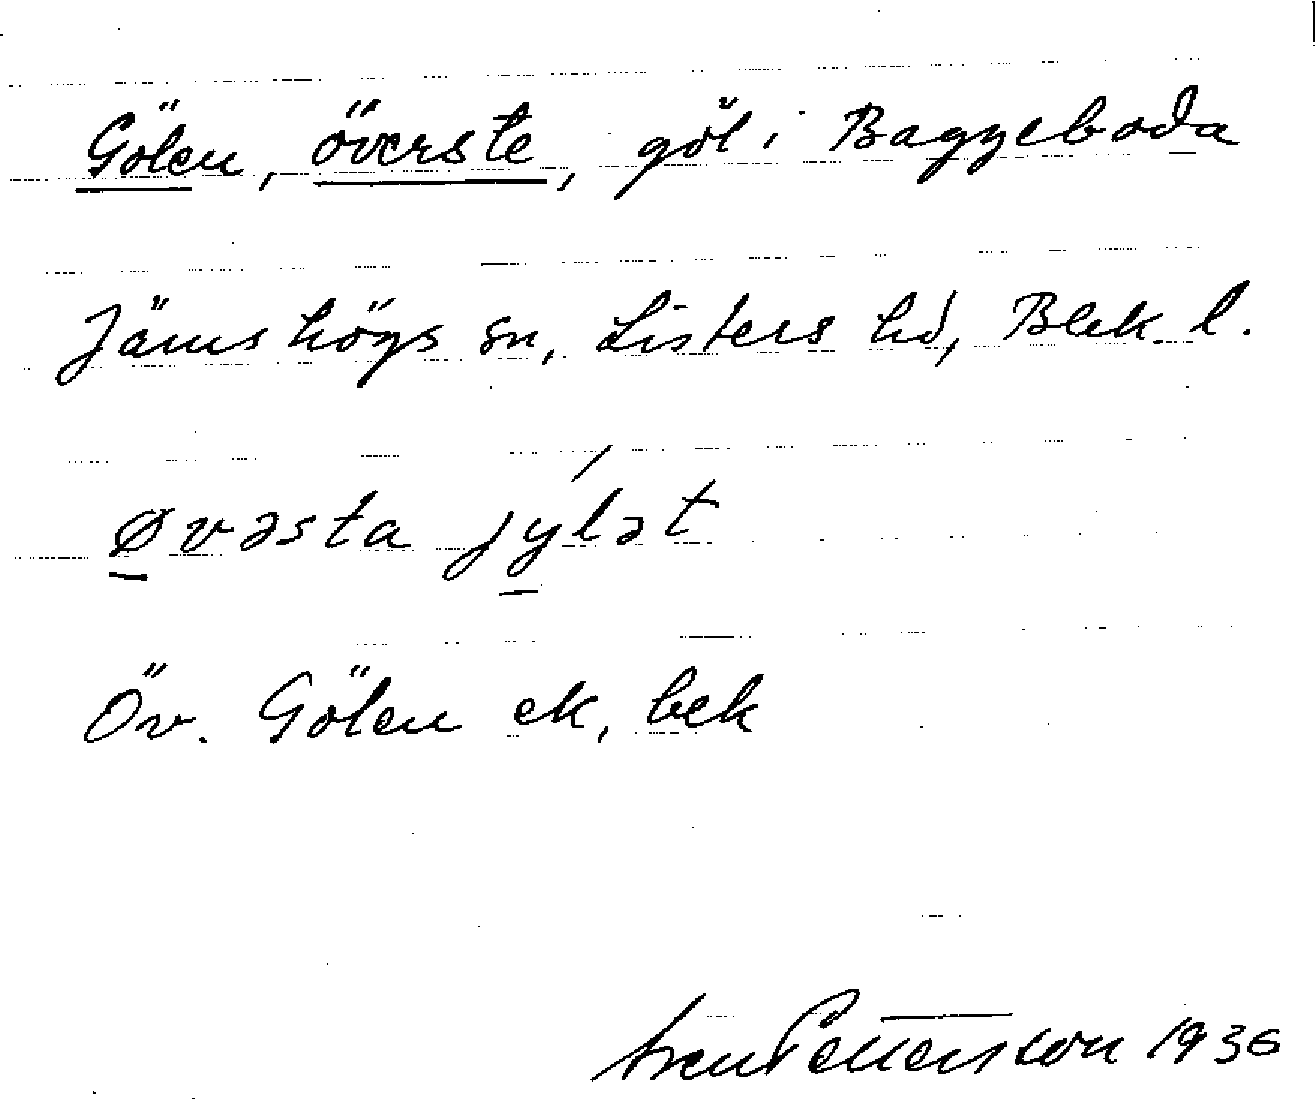 Gölen, överste, göl i Baggeboda
Jämshögs sn, Listers hd, Blek. l.
øvəsta jýlət
Öv. Gölen ek, bek
Sven Pettersson 1936